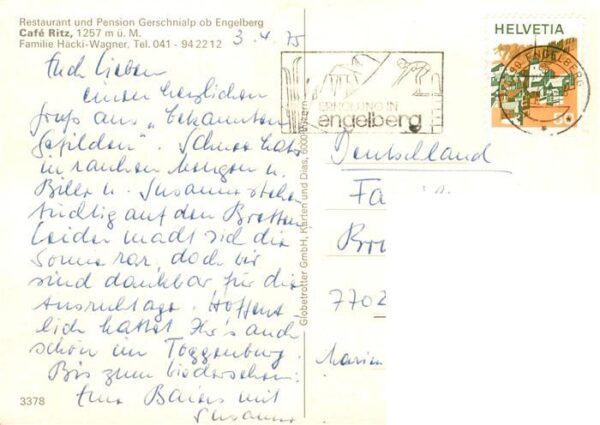 Restaurant und Pension Gerschnialp ob Engelberg
Café Ritz, 1257 m ü. M.
Familie Hacki-Wagner, Tel. 041 - 94 22 12
3.4.75
Euch Lieben
einen herzlichen
Gruß aus „bekannten
Gefilden". Schnee hats
in rauhen Mengen u.
Bille u. Susanne stehen
tüchtig auf den Brettern
Leider macht sich die
Sonne rar, doch wir
sind dankbar für die
Ausruhtage. Hoffent-
lich hattet Ihr's auch
schön im Toggenburg.
Bis zum Wiedersehen:
Eure Baiers mit
Susanne
3378
Globetrotter GmbH, Karten und Dias, 6000 Luzern
ERHOLUNG IN
engelberg
HELVETIA
ENGELBERG
50
Deutschland
Fa
Br
7702